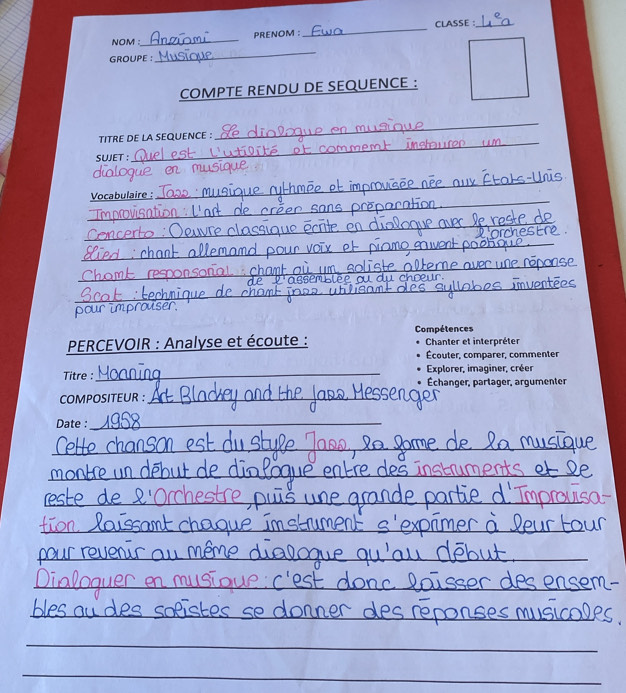 CLASSE : 4ea
NOM : Anziani PRENOM : Ewa
GROUPE : Musique
COMPTE RENDU DE SEQUENCE :
TITRE DE LA SEQUENCE : Le dialogue en musique
SUJET : Quel est l'utilité et comment instaurer un
dialogue en musique
Vocabulaire : Jazz : musique rythmée et improvisée née aux États-Unis.
Improvisation : L'art de créer sans préparation.
Concerto : Oeuvre classique écrite en dialogue avec le reste de
l'orchestre.
Lied : chant allemand pour voix et piano, souvent poétique.
Chant responsorial : chant où un soliste alterne avec une réponse
de l'assemblée ou du choeur.
Scat : technique de chant jazz utilisant des syllabes inventées
pour improviser.
PERCEVOIR : Analyse et écoute :
Compétences
• Chanter et interpréter
• Écouter, comparer, commenter
• Explorer, imaginer, créer
• Échanger, partager, argumenter
Titre : Moaning
COMPOSITEUR : Art Blackey and the Jazz Messenger
Date : 1958
Cette chanson est du style Jazz, la forme de la musique
montre un début de dialogue entre des instruments et le
reste de l'Orchestre, puis une grande partie d'Improvisa-
tion laissant chaque instrument s'exprimer à leur tour
pour revenir au même dialogue qu'au début.
Dialoguer en musique : c'est donc laisser des ensem-
bles ou des solistes se donner des réponses musicales.